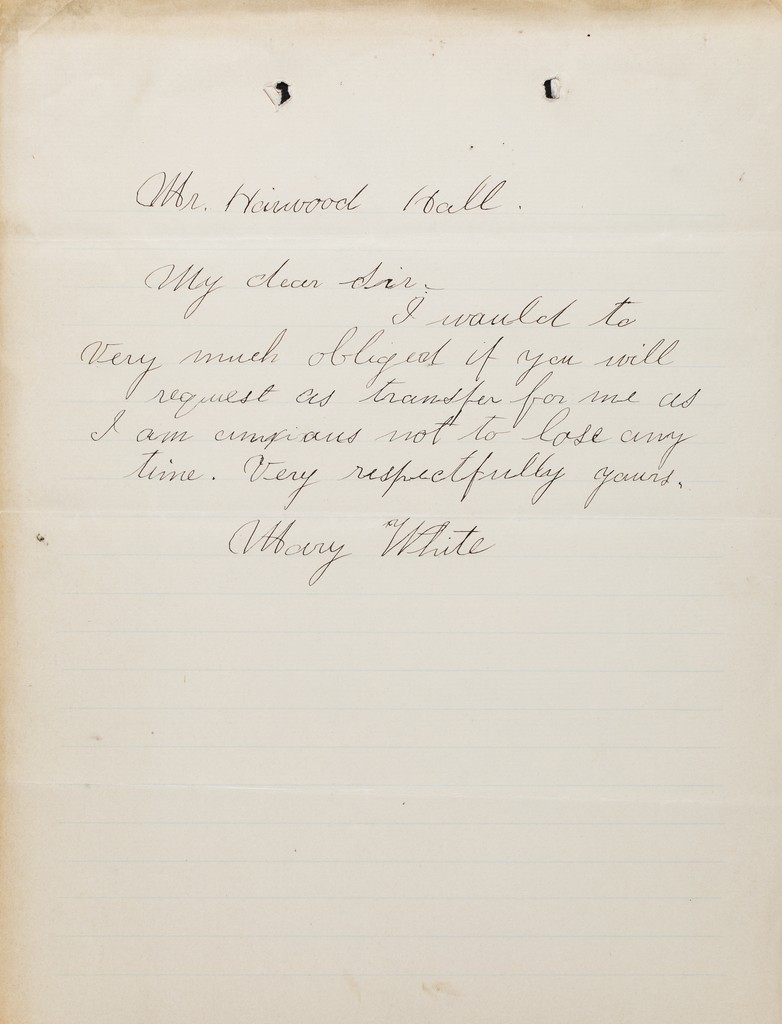 Mr. Harwood Hall.
My dear Sir:
I would to
Very much obliged if you will
request as transfer for me as
I am anxious not to lose any
time. Very respectfully yours.
Mary White